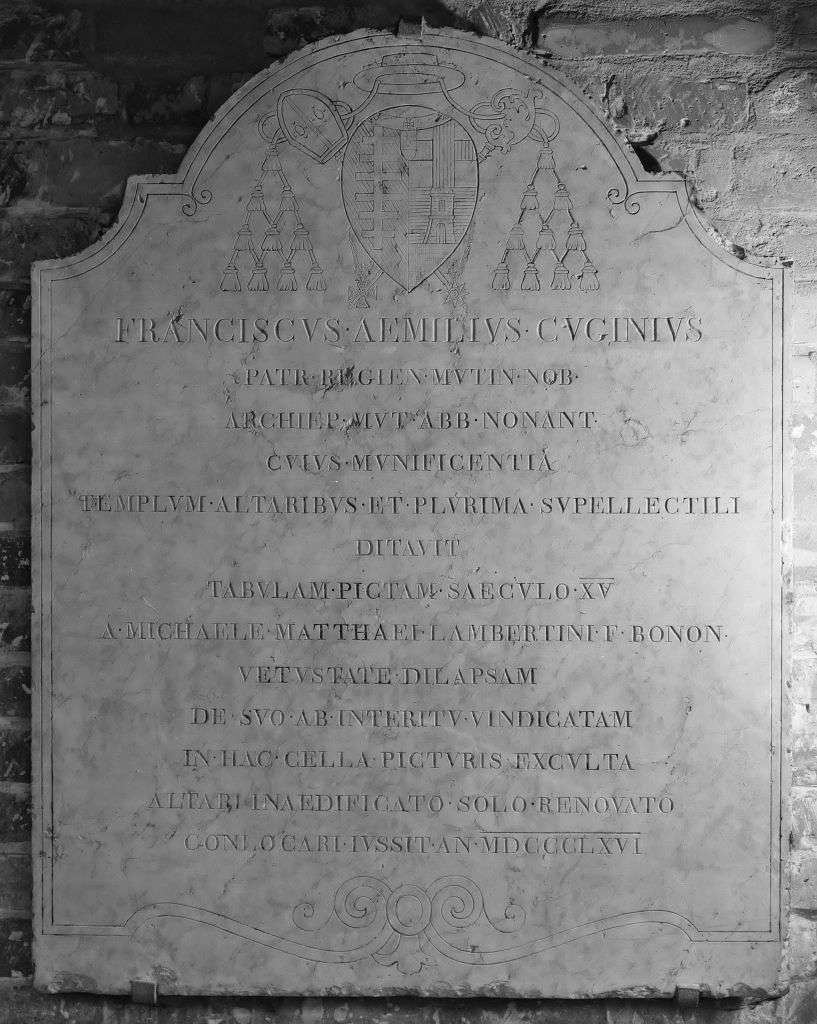 FRANCISCVS·AEMILIVS·CVGINIVS
PATR·REGIEN·MVTIN·NOB·
ARCHIEP·MVT·ABB·NONANT·
CVIVS·MVNIFICENTIA
TEMPLVM·ALTARIBVS·ET·PLVRIMA·SVPELLECTILI
DITAVIT
TABVLAM·PICTAM·SAECVLO·X̅V̅
A·MICHAELE·MATTHAEI·LAMBERTINI·F·BONON·
VETVSTATE·DILAPSAM
DE·SVO·AB·INTERITV·VINDICATAM
IN·HAC·CELLA·PICTVRIS·EXCVLTA
ALTARI·INAEDIFICATO·SOLO·RENOVATO
CONLOCARI·IVSSIT·AN·M̅D̅C̅C̅C̅C̅L̅X̅V̅I̅